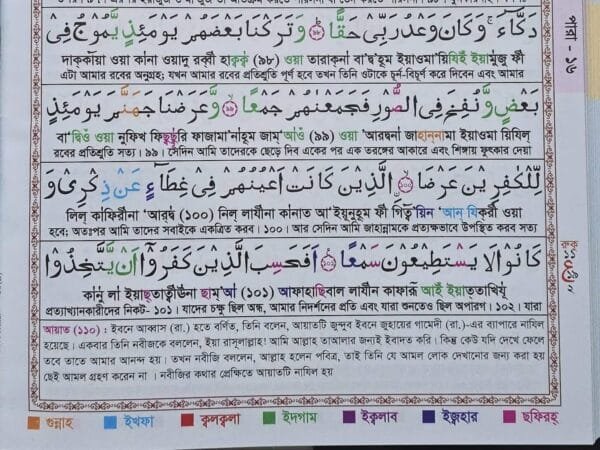 دَكَّآءَ ۚ وَكَانَ وَعْدُ رَبِّىْ حَقًّا ﴿٩٨﴾ وَتَرَكْنَا بَعْضَهُمْ يَوْمَئِذٍ يَّمُوْجُ فِىْ
দাক্কাীয়া ওয়া কাঁনা ওয়াদু রব্বী হাক্ক্বঁ (৯৮) ওয়া তারাক্‌না বা'দ্ব'হুম ইয়াওমা'য়িযিইঁ ইয়ামূজু ফী
এটা আমার রবের অনুগ্রহ; যখন আমার রবের প্রতিশ্রুতি পূর্ণ হবে তখন তিনি ওটাকে চূর্ন-বিচূর্ন করে দিবেন এবং আমার
بَعْضٍ وَّنُفِخَ فِى الصُّوْرِ فَجَمَعْنٰهُمْ جَمْعًا ﴿٩٩﴾ وَّعَرَضْنَا جَهَنَّمَ يَوْمَئِذٍ
বা'দ্বিওঁ ওয়া নুফিখ ফিছ্ছূরি ফাজামা'না'হুম জাম্'আওঁ (৯৯) ওয়া 'আরদ্বনা জাহান্নামা ইয়াওমা য়িযিল্
রবের প্রতিশ্রুতি সত্য। ৯৯। সেদিন আমি তাদেরকে ছেড়ে দিব একের পর এক তরঙ্গের আকারে এবং শিঙ্গায় ফুৎকার দেয়া
لِّلْكٰفِرِيْنَ عَرْضَا ۙ﴿١٠٠﴾ الَّذِيْنَ كَانَتْ اَعْيُنُهُمْ فِىْ غِطَآءٍ عَنْ ذِكْرِىْ وَ
লিল্ কাফিরীনা 'আরদ্ব (১০০) নিল্ লাযীনা কানাত আ'ইয়ুনুহুম ফী গিত্বায়িন 'আন্ যিকরী ওয়া
হবে; অতঃপর আমি তাদের সবাইকে একত্রিত করব। ১০০। আর সেদিন আমি জাহান্নামকে প্রত্যক্ষভাবে উপস্থিত করব সত্য
كَانُوْا لَا يَسْتَطِيْعُوْنَ سَمْعًا ﴿١٠١﴾ اَفَحَسِبَ الَّذِيْنَ كَفَرُوْۤا اَنْ يَّتَّخِذُوْا
কাঁনূ লা ইয়াছ্তাত্বীঊনা ছাম্'আঁ (১০১) আফাহাছিবাল লাযীন কাফারূঁ আইঁ ইয়াত্তাখিযূ
প্রত্যাখানকারীদের নিকট- ১০১। যাদের চক্ষু ছিল অন্ধ, আমার নিদর্শনের প্রতি এবং যারা শুনতেও ছিল অপারগ। ১০২। যারা
আয়াত (১১০) : ইবনে আব্বাস (রা.) হতে বর্ণিত, তিনি বলেন, আয়াতটি জুন্দুব ইবনে জুহায়ের গামেদী (রা.)-এর ব্যাপারে নাযিল
হয়েছে। একবার তিনি নবীজকে বললেন, ইয়া রাসূলাল্লাহ! আমি আল্লাহ তাআলার জন্যই ইবাদত করি। কিন্তু কেউ যদি দেখে ফেলে
তবে তাতে আমার আনন্দ হয়। তখন নবীজি বললেন, আল্লাহ হলেন পবিত্র, তাই তিনি যে আমল লোক দেখানোর জন্য করা হয়
ছেই আমল গ্রহণ করেন না । নবীজির কথার প্রেক্ষিতে আয়াতটি নাযিল হয়
গুন্নাহ ইখফা ক্বলক্বলা ইদগাম ইক্বলাব ইজ্বহার ছফিরহ্
পারা - ১৬